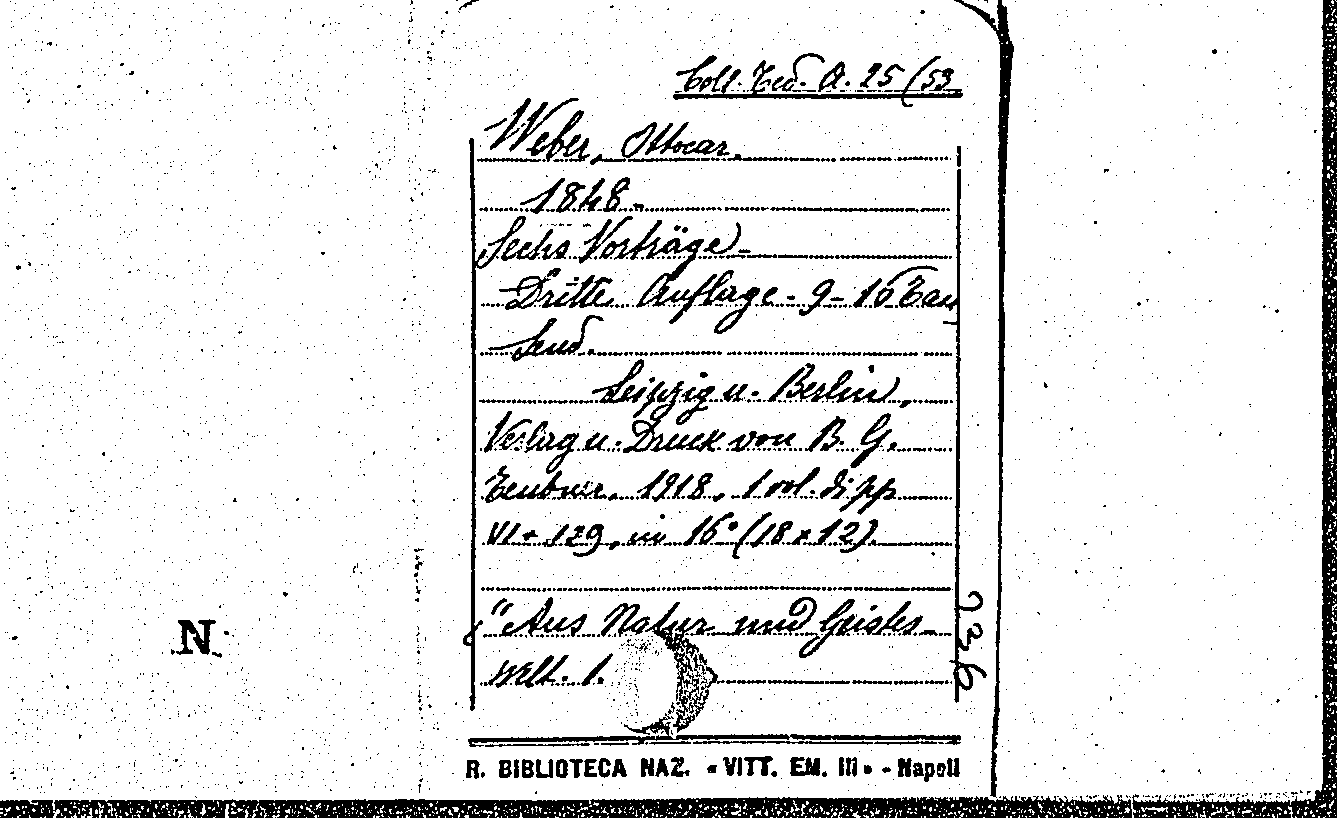 Coll. Ted. A. 25/53
Weber, Ottocar.
1848.
Sechs Vorträge.
Dritte Auflage. 9-16 Tau
send.
Leipzig u. Berlin,
Verlag u. Druck von B. G.
Teubner, 1918, 1 vol. di pp
VI + 129, in 16° (18 x 12).
"Aus Natur und Geistes-
welt. 1.
236
N
R. BIBLIOTECA NAZ. « VITT. EM. III » - Napoli